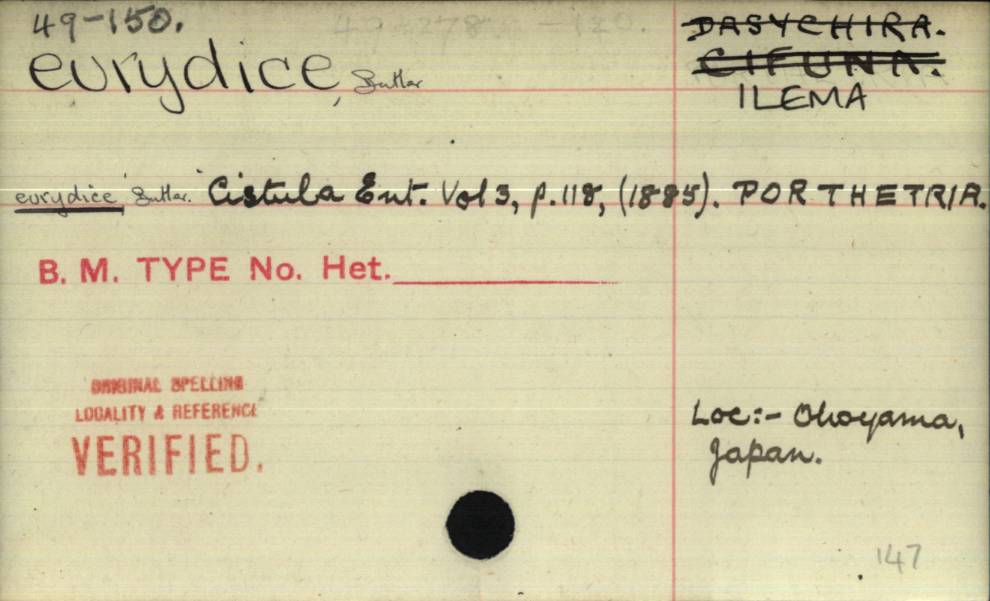 49-150.
DASYCHIRA.
CIFUNA.
eurydice, Butler
ILEMA
eurydice, Butler. Cistula Ent. Vol 3, p.118, (1885). PORTHETRIA.
B. M. TYPE No. Het.
ORIGINAL SPELLING
LOCALITY & REFERENCE
VERIFIED.
Loc:- Ohoyama,
Japan.
147